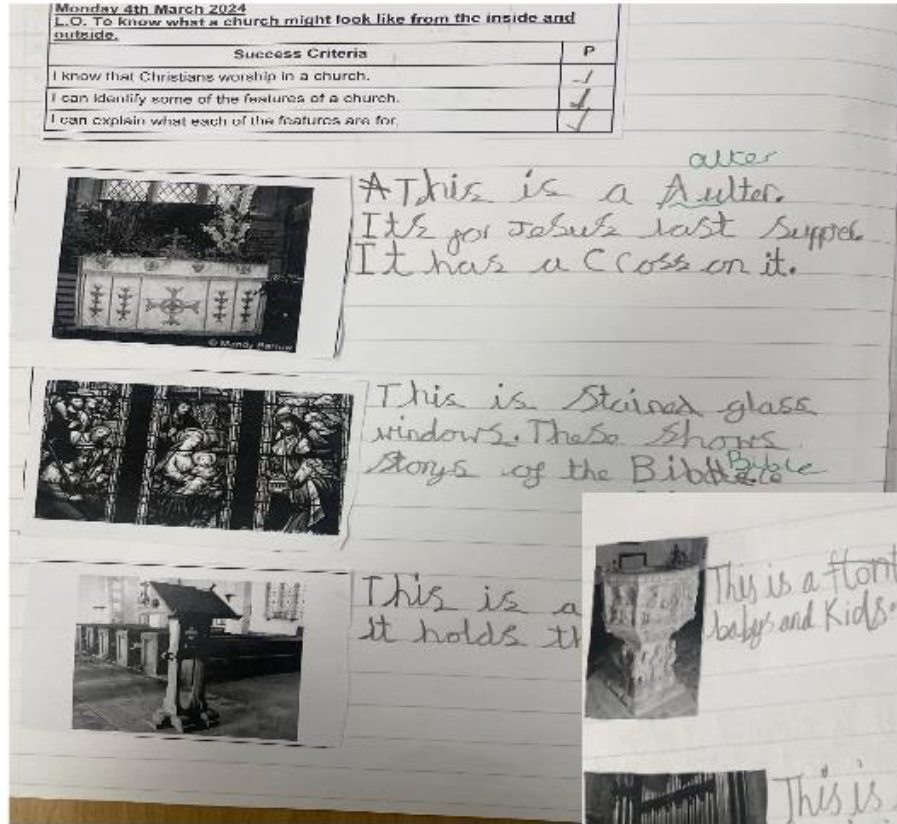 Monday 4th March 2024
L.O. To know what a church might look like from the inside and
outside.
Success Criteria P
I know that Christians worship in a church.
I can identify some of the features of a church.
I can explain what each of the features are for.
alter
This is a Aulter.
Its for Jesus last supper.
It has a Cross on it.
© Mandy Barrow
This is Stained glass
windows. These Shows
storys of the Bible
This is a
it holds th
This is a font
babys and Kids.
This is